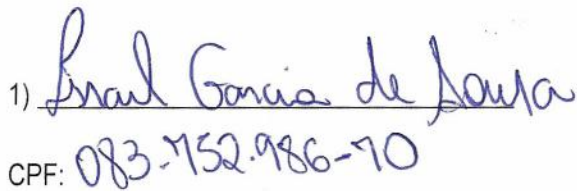 1) Israel Garcia de Souza
CPF: 083.752.986-70